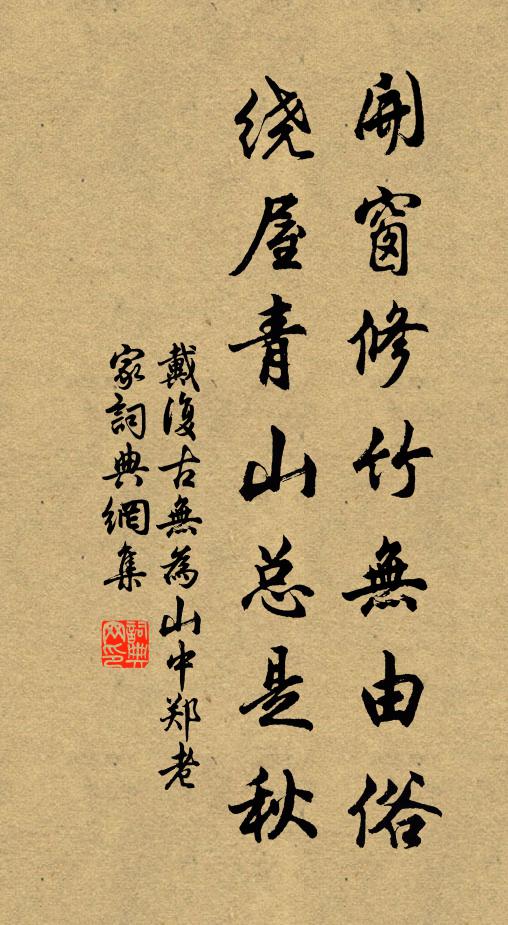 開窗修竹無由俗
绕屋青山总是秋
戴復古無為山中郑老
家詞典網集
詞典
网印